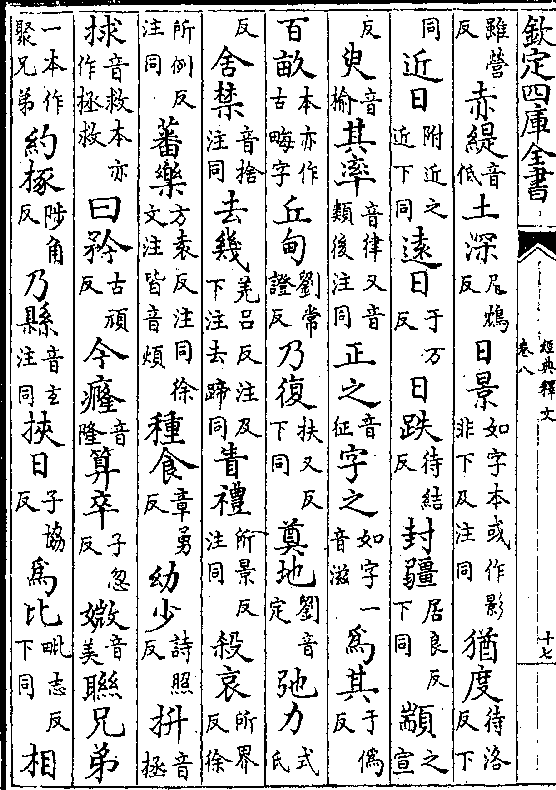 欽定四庫全書 經典釋文 卷八 十七
雖營反赤緹音低土深尸鴆反日景如字本或作影非下及注同猶度待洛反下
同近日附近之近下同遠日于万反日跌待結反封疆居良反下同顓之宣
反臾音榆其率音律又音類後注同正之音征字之如字一音滋為其于偽反
百畝本亦作古畮字丘甸劉常證反乃復扶又反下同奠地劉音定弛力式氏
反舍禁音捨注同去幾羌呂反注及下注去蹄同眚禮所景反注同殺哀所界反徐
所例反注同蕃樂方袁反注同徐文注皆音煩種食章勇反幼少詩照反抍音拯
捄音救本亦作拯救曰矜古頑反今癃音隆算卒子忽反媺音美聯兄弟
一本作聚兄弟約椓陟角反乃縣音玄注同挾日子協反為比毗志反下同相